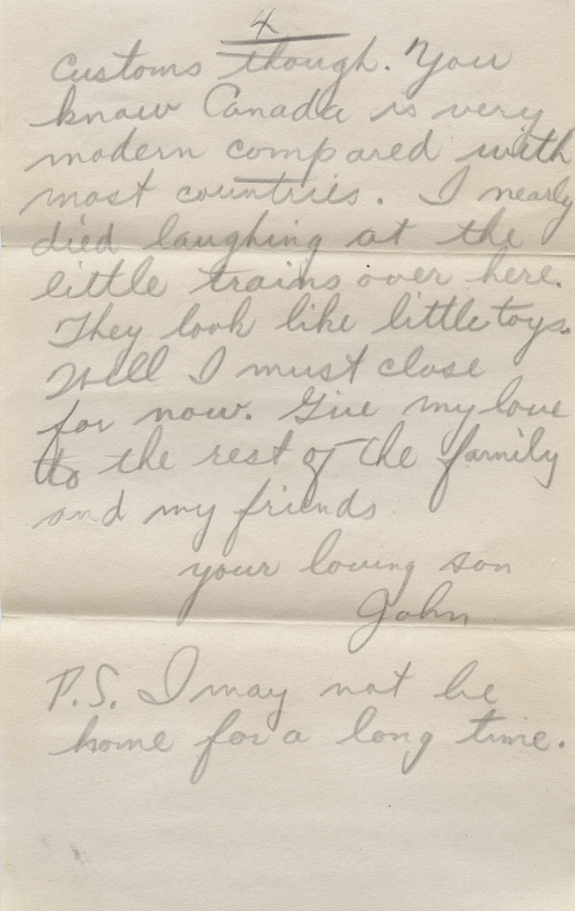 4
customs though. You
know Canada is very
modern compared with
most countries. I nearly
died laughing at the
little trains over here.
They look like little toys.
Well I must close
for now. Give my love
to the rest of the family
and my friends
your loving son
John
P.S. I may not be
home for a long time.